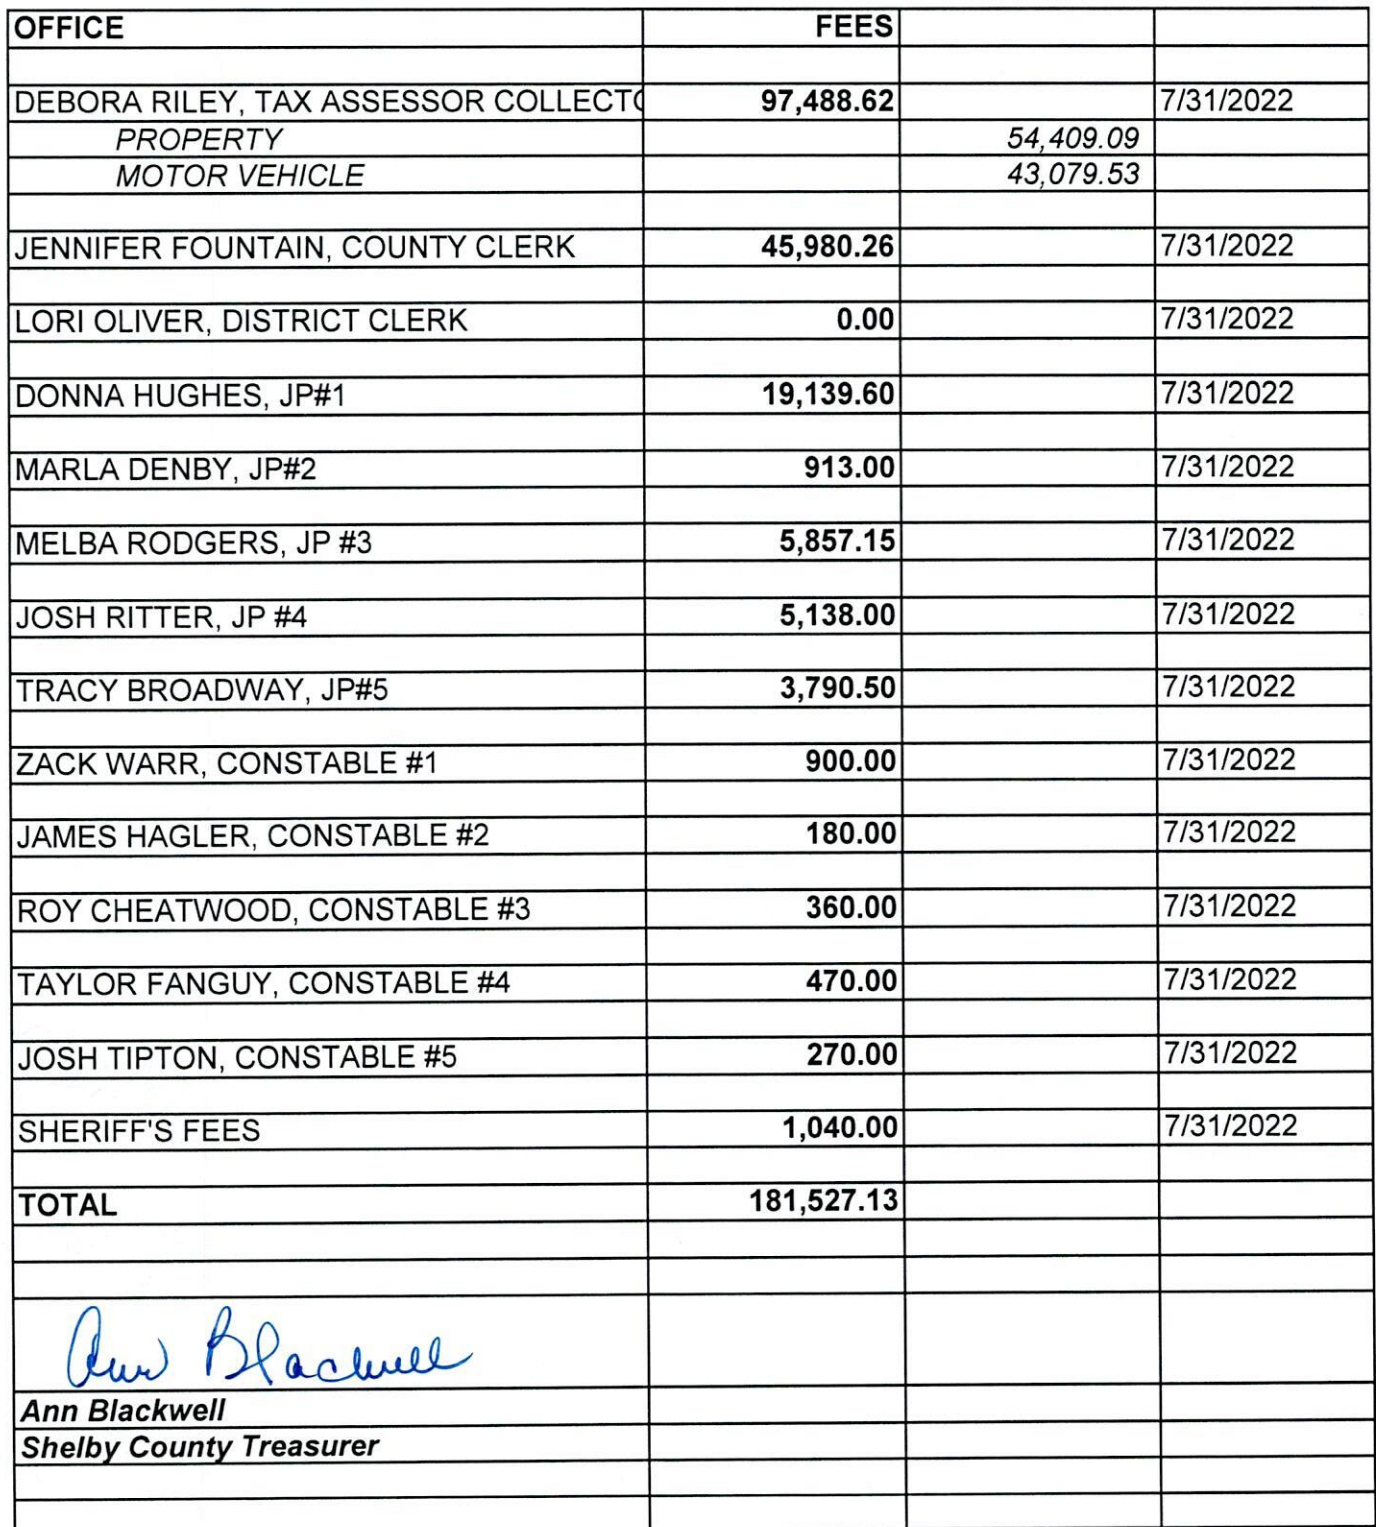 OFFICE FEES
DEBORA RILEY, TAX ASSESSOR COLLECTO 97,488.62 7/31/2022
PROPERTY 54,409.09
MOTOR VEHICLE 43,079.53
JENNIFER FOUNTAIN, COUNTY CLERK 45,980.26 7/31/2022
LORI OLIVER, DISTRICT CLERK 0.00 7/31/2022
DONNA HUGHES, JP#1 19,139.60 7/31/2022
MARLA DENBY, JP#2 913.00 7/31/2022
MELBA RODGERS, JP #3 5,857.15 7/31/2022
JOSH RITTER, JP #4 5,138.00 7/31/2022
TRACY BROADWAY, JP#5 3,790.50 7/31/2022
ZACK WARR, CONSTABLE #1 900.00 7/31/2022
JAMES HAGLER, CONSTABLE #2 180.00 7/31/2022
ROY CHEATWOOD, CONSTABLE #3 360.00 7/31/2022
TAYLOR FANGUY, CONSTABLE #4 470.00 7/31/2022
JOSH TIPTON, CONSTABLE #5 270.00 7/31/2022
SHERIFF'S FEES 1,040.00 7/31/2022
TOTAL 181,527.13
Ann Blackwell
Ann Blackwell
Shelby County Treasurer